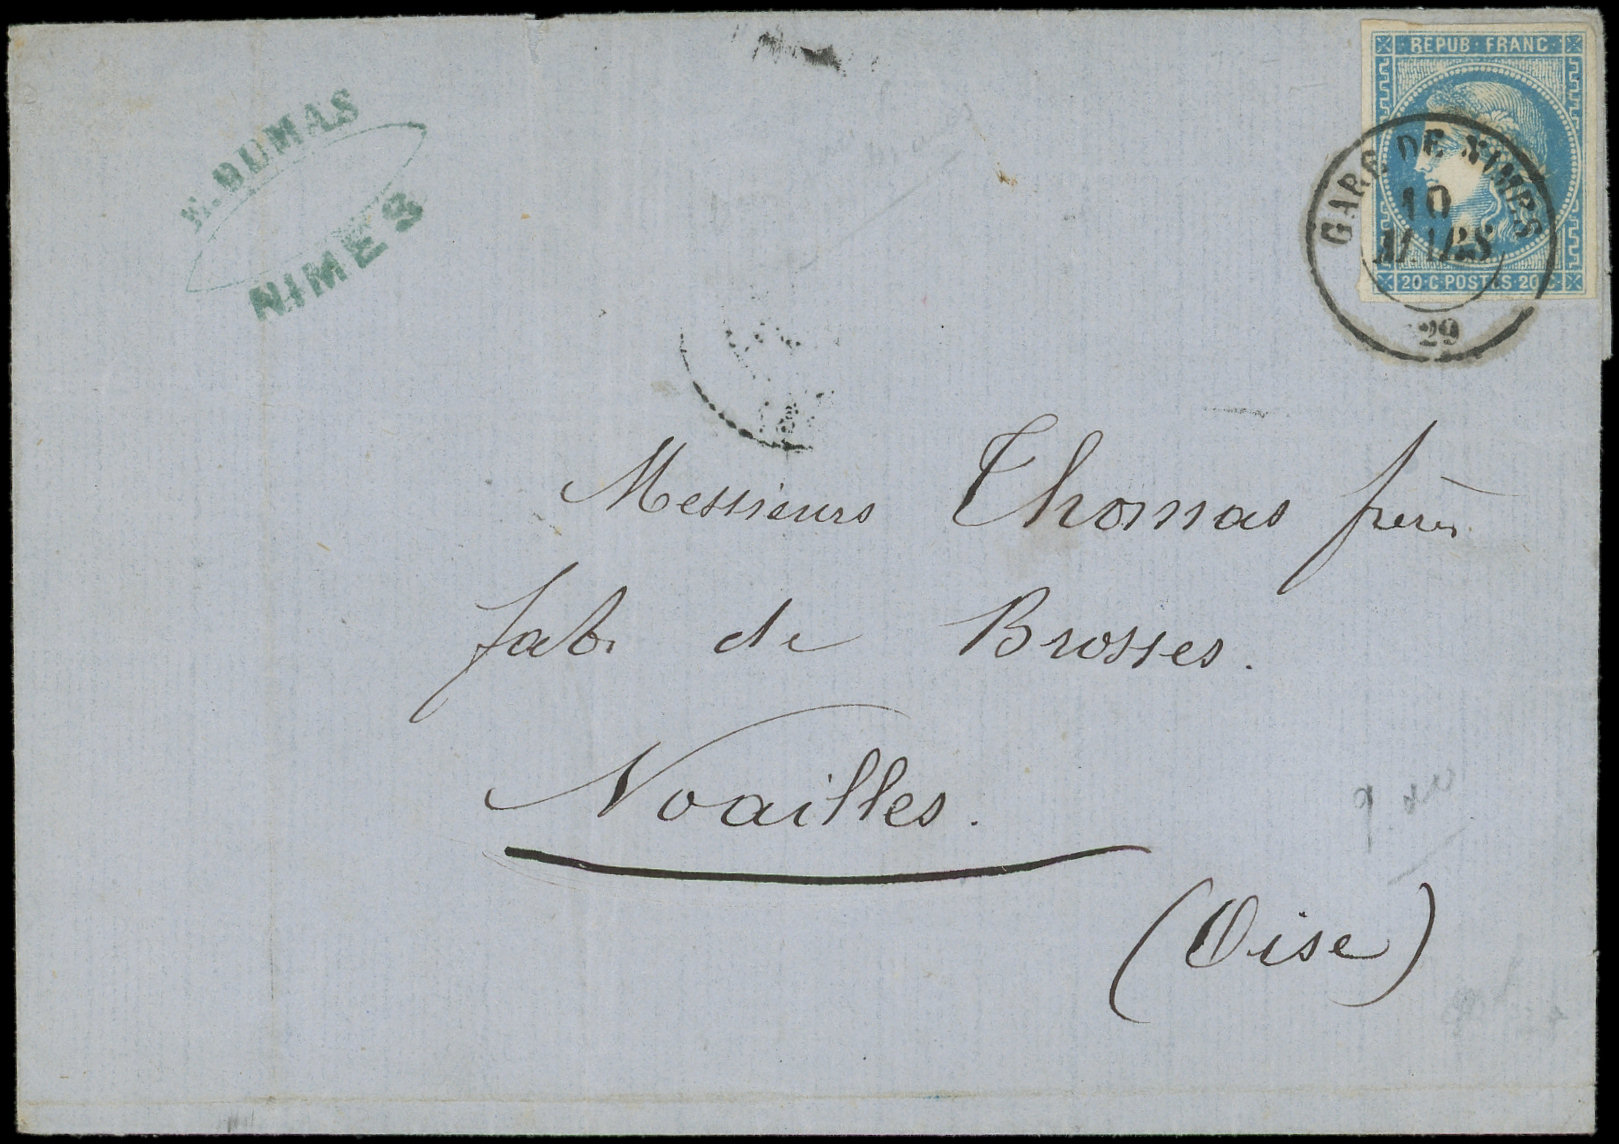 REPUB · FRANC ·
GARE DE NIMES
10
MARS
20 · C · POSTES · 20 · C
29
E. DUMAS
NIMES
Messieurs Thomas frères
fab. de Brosses.
Noailles.
(Oise)